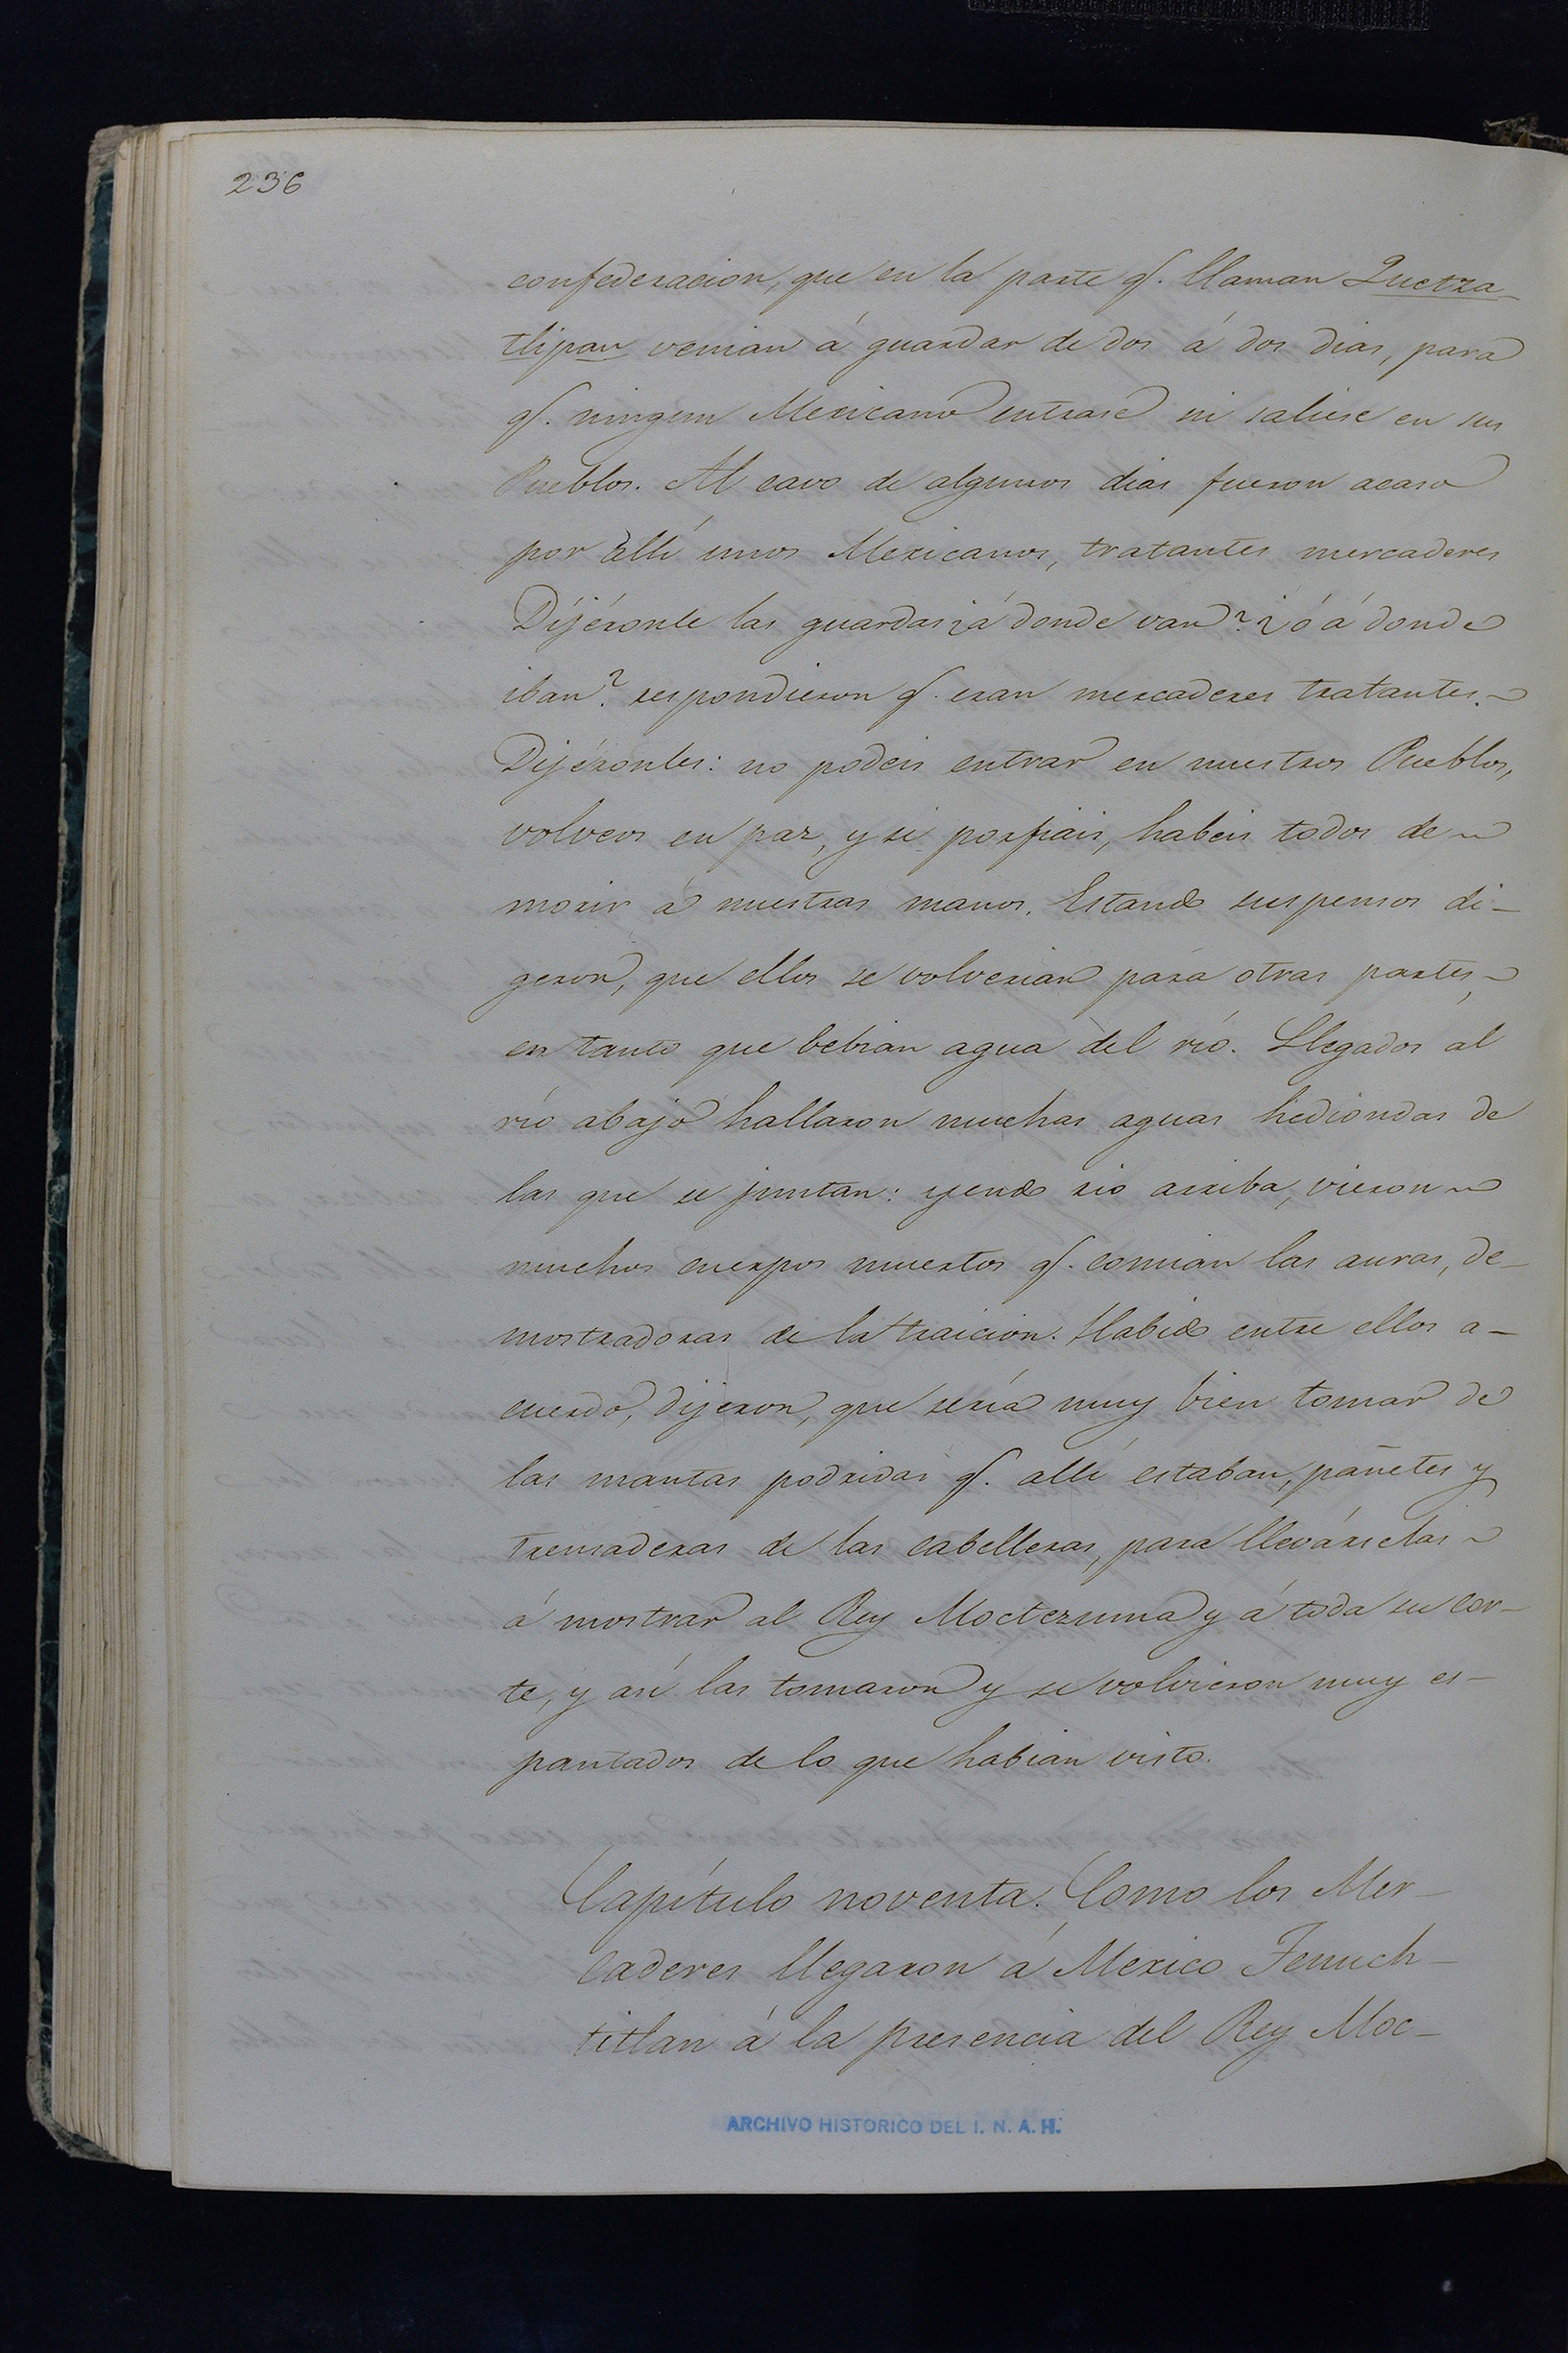 236
confederacion, que en la parte q.e llaman Quetza-
tlipan venian á guardar de dos á dos dias, para
q.e ningun Mexicano entrase ni saliese en sus
Pueblos. Al cavo de algunos dias fueron acaso
por allí unos Mexicanos, tratantes mercaderes
Dijéronle las guardas ¿á donde van? ¿ó á donde
iban? respondieron q.e eran mercaderes tratantes.
Dijéronles: no podeis entrar en nuestros Pueblos,
volveos en paz, y si porfiais, habeis todos de
morir á nuestras manos. Estando suspensos di-
geron, que ellos se volverian para otras partes,
en tanto que bebian agua del río. Llegados al
río abajo hallaron muchas aguas hediondas de
las que se juntan: yendo rio arriba, vieron
muchos cuerpos muertos q.e comian las auras, de-
mostradoras de la traicion. Habido entre ellos a-
cuerdo, dijeron, que sería muy bien tomar de
las mantas podridas q.e allí estaban, pañetes y
trensaderas de las cabelleras, para llevárselas
á mostrar al Rey Moctezuma y á toda su cor-
te, y así las tomaron y se volvieron muy es-
pantados de lo que habian visto.
Capítulo noventa. Como los Mer-
caderes llegaron á Mexico Tenuch-
titlan á la presencia del Rey Moc-
ARCHIVO HISTORICO DEL I. N. A. H.